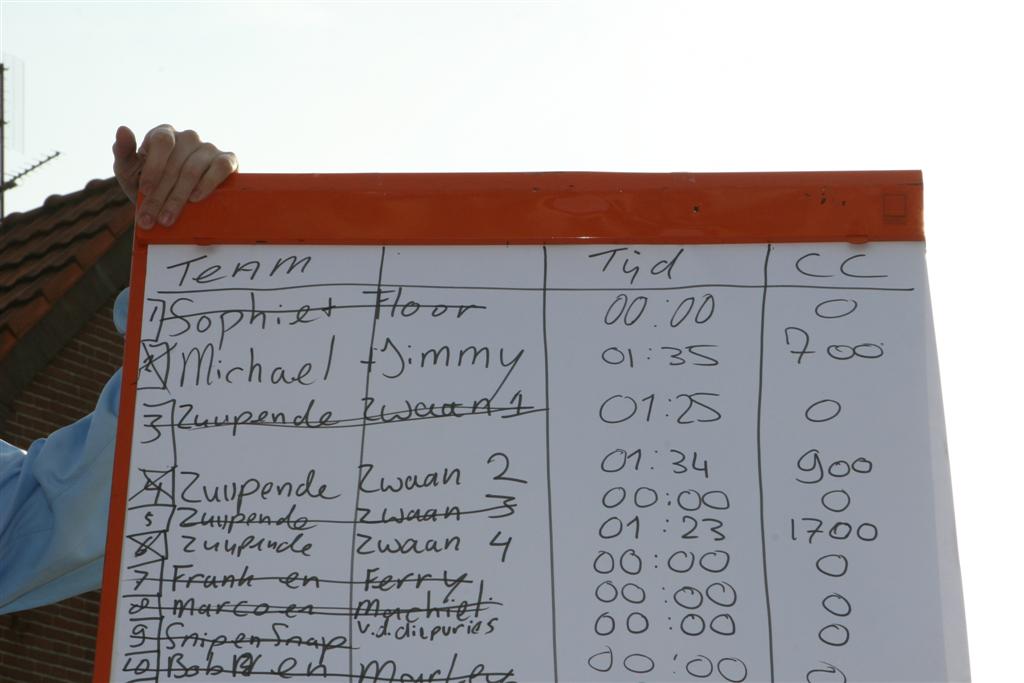 Team Tijd CC
1 Sophie + Floor 00:00 0
2 Michael + Jimmy 01:35 700
3 Zuupende Zwaan 1 01:25 0
4 Zuipende Zwaan 2 01:34 900
5 Zuupende Zwaan 3 00:00 0
6 Zuupende Zwaan 4 01:23 1700
7 Frank en Ferry 00:00 0
8 Marco en Machiel 00:00 0
9 Snip en Snap v.d. 00:00 0
10 en Marley 00:00 0